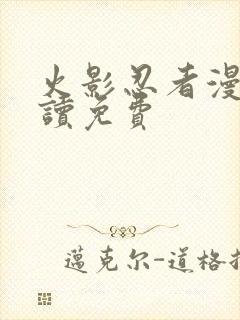 火影忍者漫
讀免費
邁克尔-道格拉